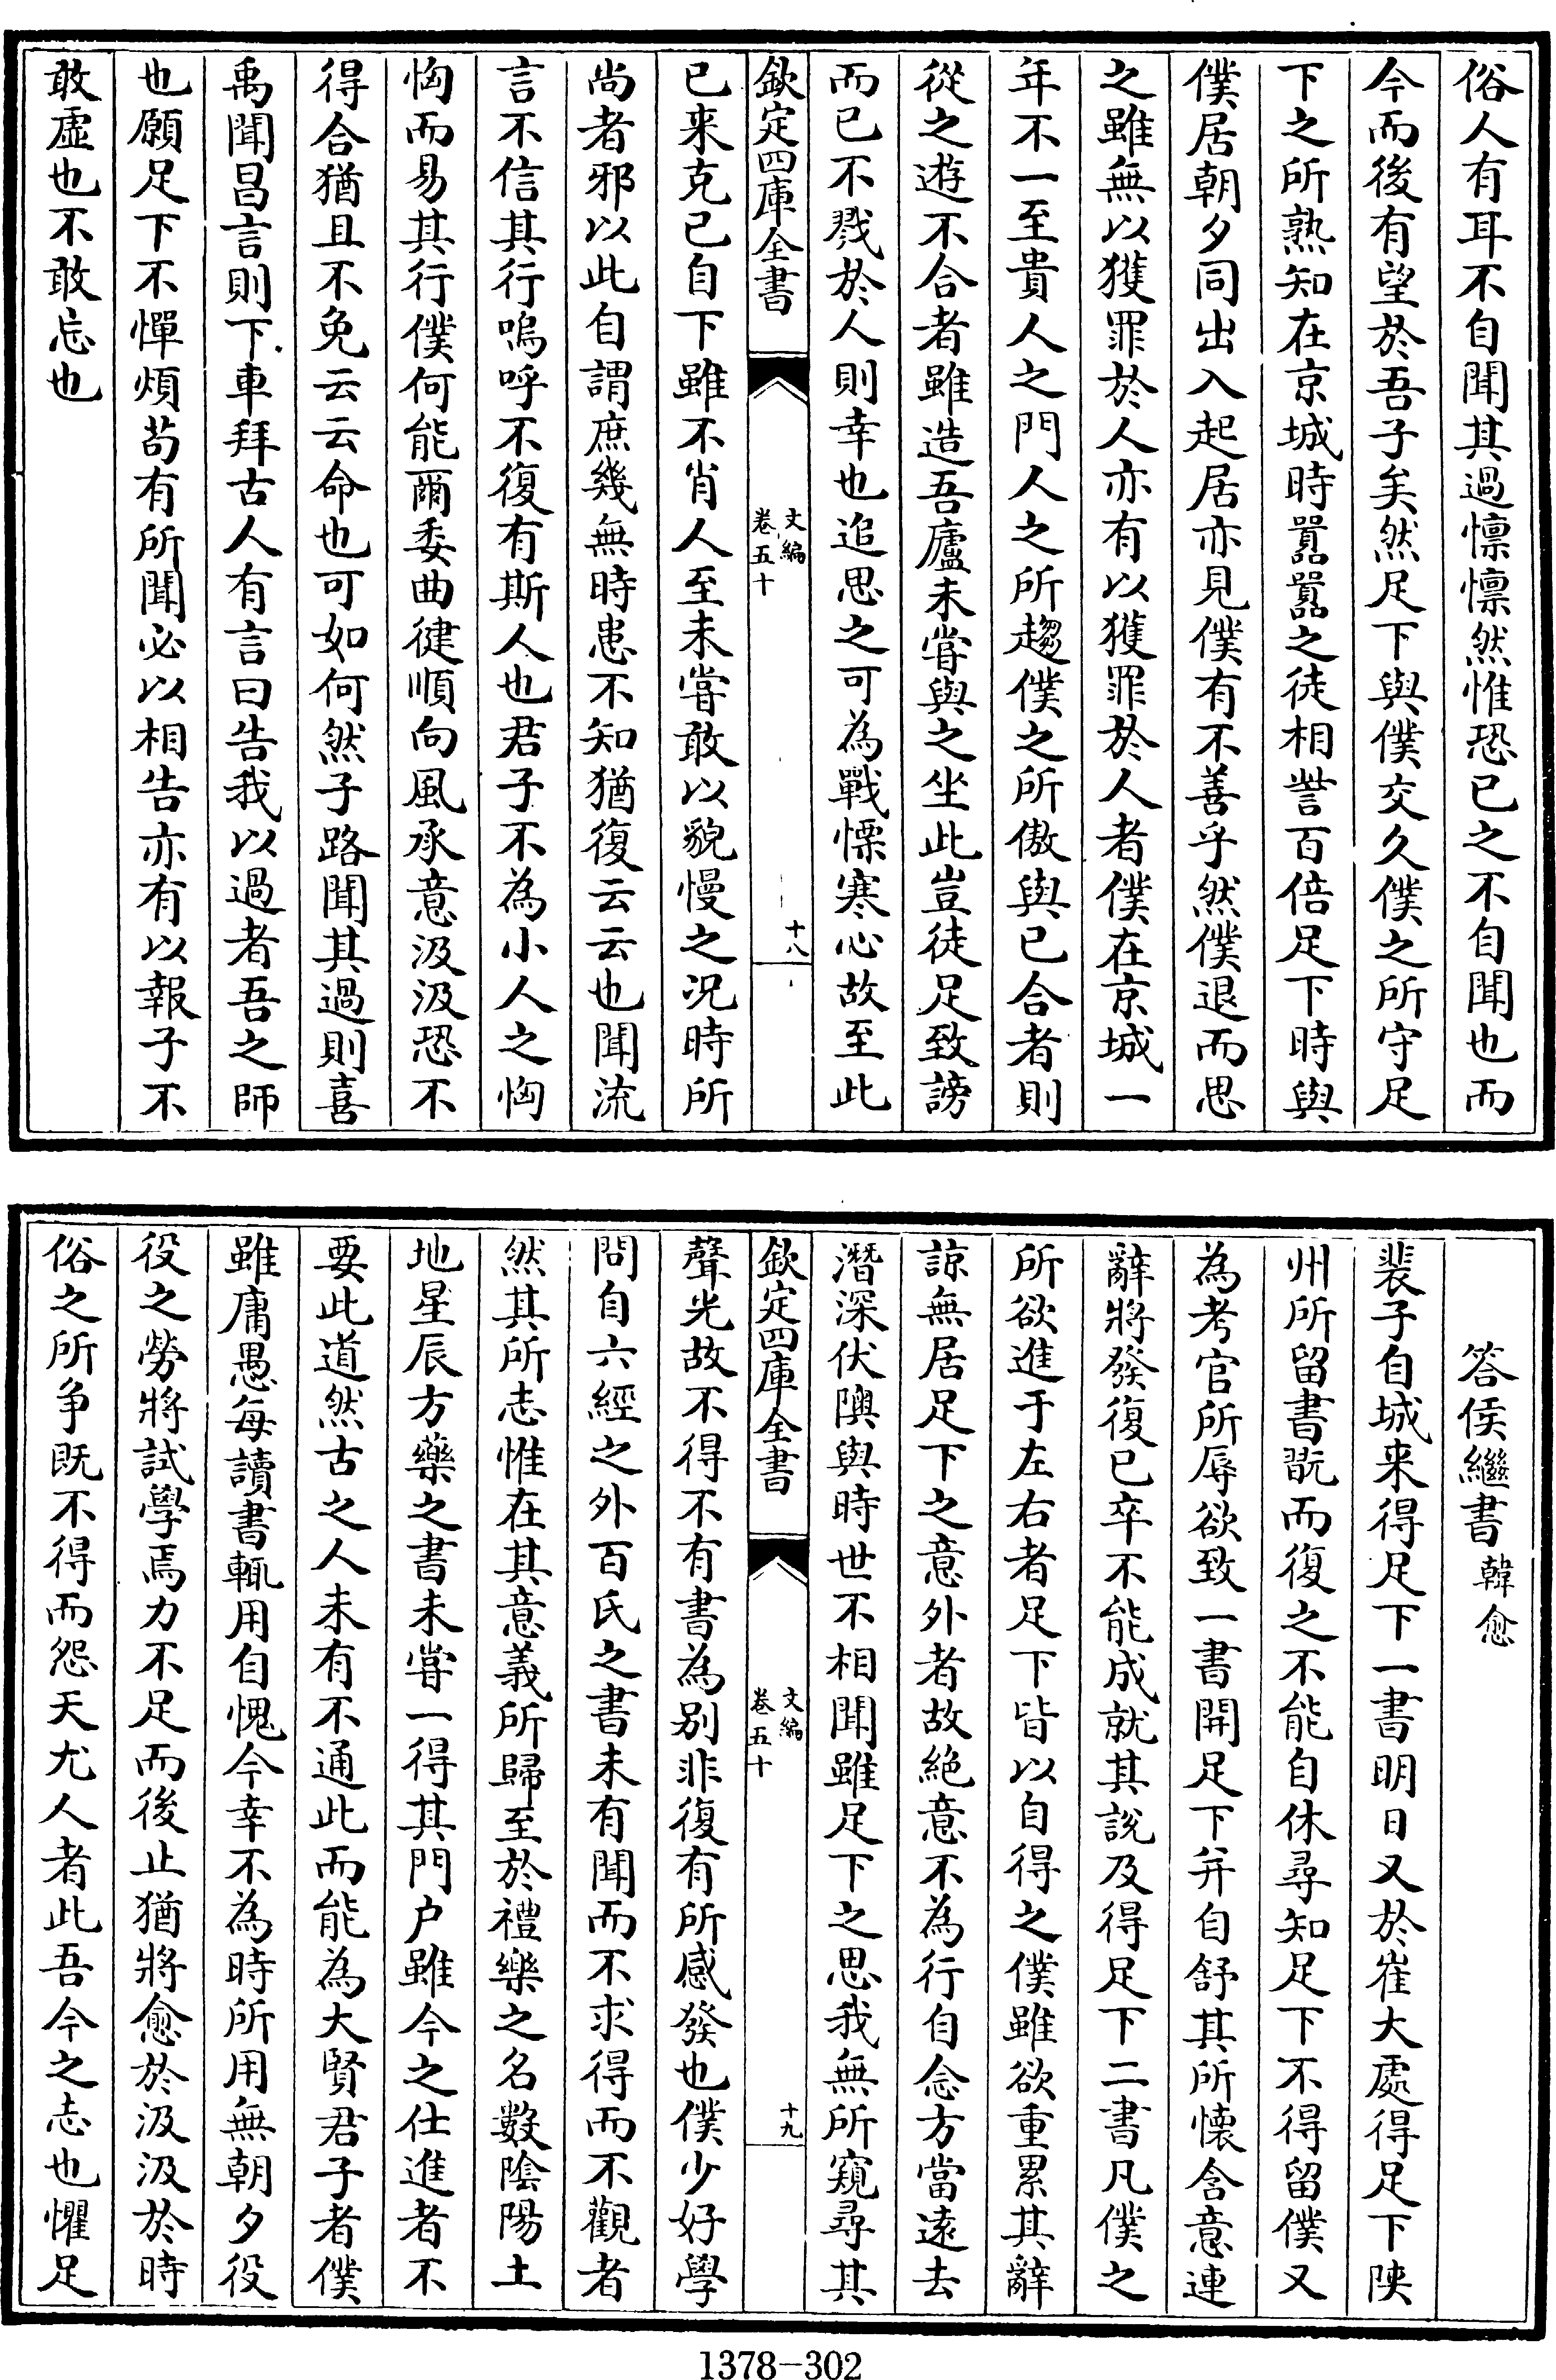 俗人有耳不自聞其過懔懔然惟恐已之不自聞也而
今而後有望於吾子矣然足下與僕交久僕之所守足
下之所熟知在京城時囂囂之徒相訾百倍足下時與
僕居朝夕同出入起居亦見僕有不善乎然僕退而思
之雖無以獲罪於人亦有以獲罪於人者僕在京城一
年不一至貴人之門人之所趨僕之所傲與已合者則
從之遊不合者雖造吾廬未嘗與之坐此豈徒足致謗
而已不戮於人則幸也追思之可為戰慄寒心故至此
欽定四庫全書
文編
卷五十
十八
已来克已自下雖不肖人至未嘗敢以貌慢之况時所
尚者邪以此自謂庶幾無時患不知猶復云云也聞流
言不信其行嗚呼不復有斯人也君子不為小人之恟
恟而易其行僕何能爾委曲徤順向風承意汲汲恐不
得合猶且不免云云命也可如何然子路聞其過則喜
禹聞昌言則下車拜古人有言曰告我以過者吾之師
也願足下不憚煩苟有所聞必以相告亦有以報子不
敢虛也不敢忘也
答侯繼書 韓愈
裴子自城来得足下一書明日又於崔大處得足下陝
州所留書翫而復之不能自休尋知足下不得留僕又
為考官所辱欲致一書開足下并自舒其所懐含意連
辭將發復已卒不能成就其說及得足下二書凡僕之
所欲進于左右者足下皆以自得之僕雖欲重累其辭
諒無居足下之意外者故絶意不為行自念方當遠去
潛深伏隩與時世不相聞雖足下之思我無所窺尋其
欽定四庫全書
文編
卷五十
十九
聲光故不得不有書為别非復有所感發也僕少好學
問自六經之外百氏之書未有聞而不求得而不觀者
然其所志惟在其意義所歸至於禮樂之名數隂陽土
地星辰方藥之書未嘗一得其門户雖今之仕進者不
要此道然古之人未有不通此而能為大賢君子者僕
雖庸愚每讀書輒用自愧今幸不為時所用無朝夕役
役之勞將試學焉力不足而後止猶將愈於汲汲於時
俗之所争既不得而怨天尤人者此吾今之志也懼足
1378-302